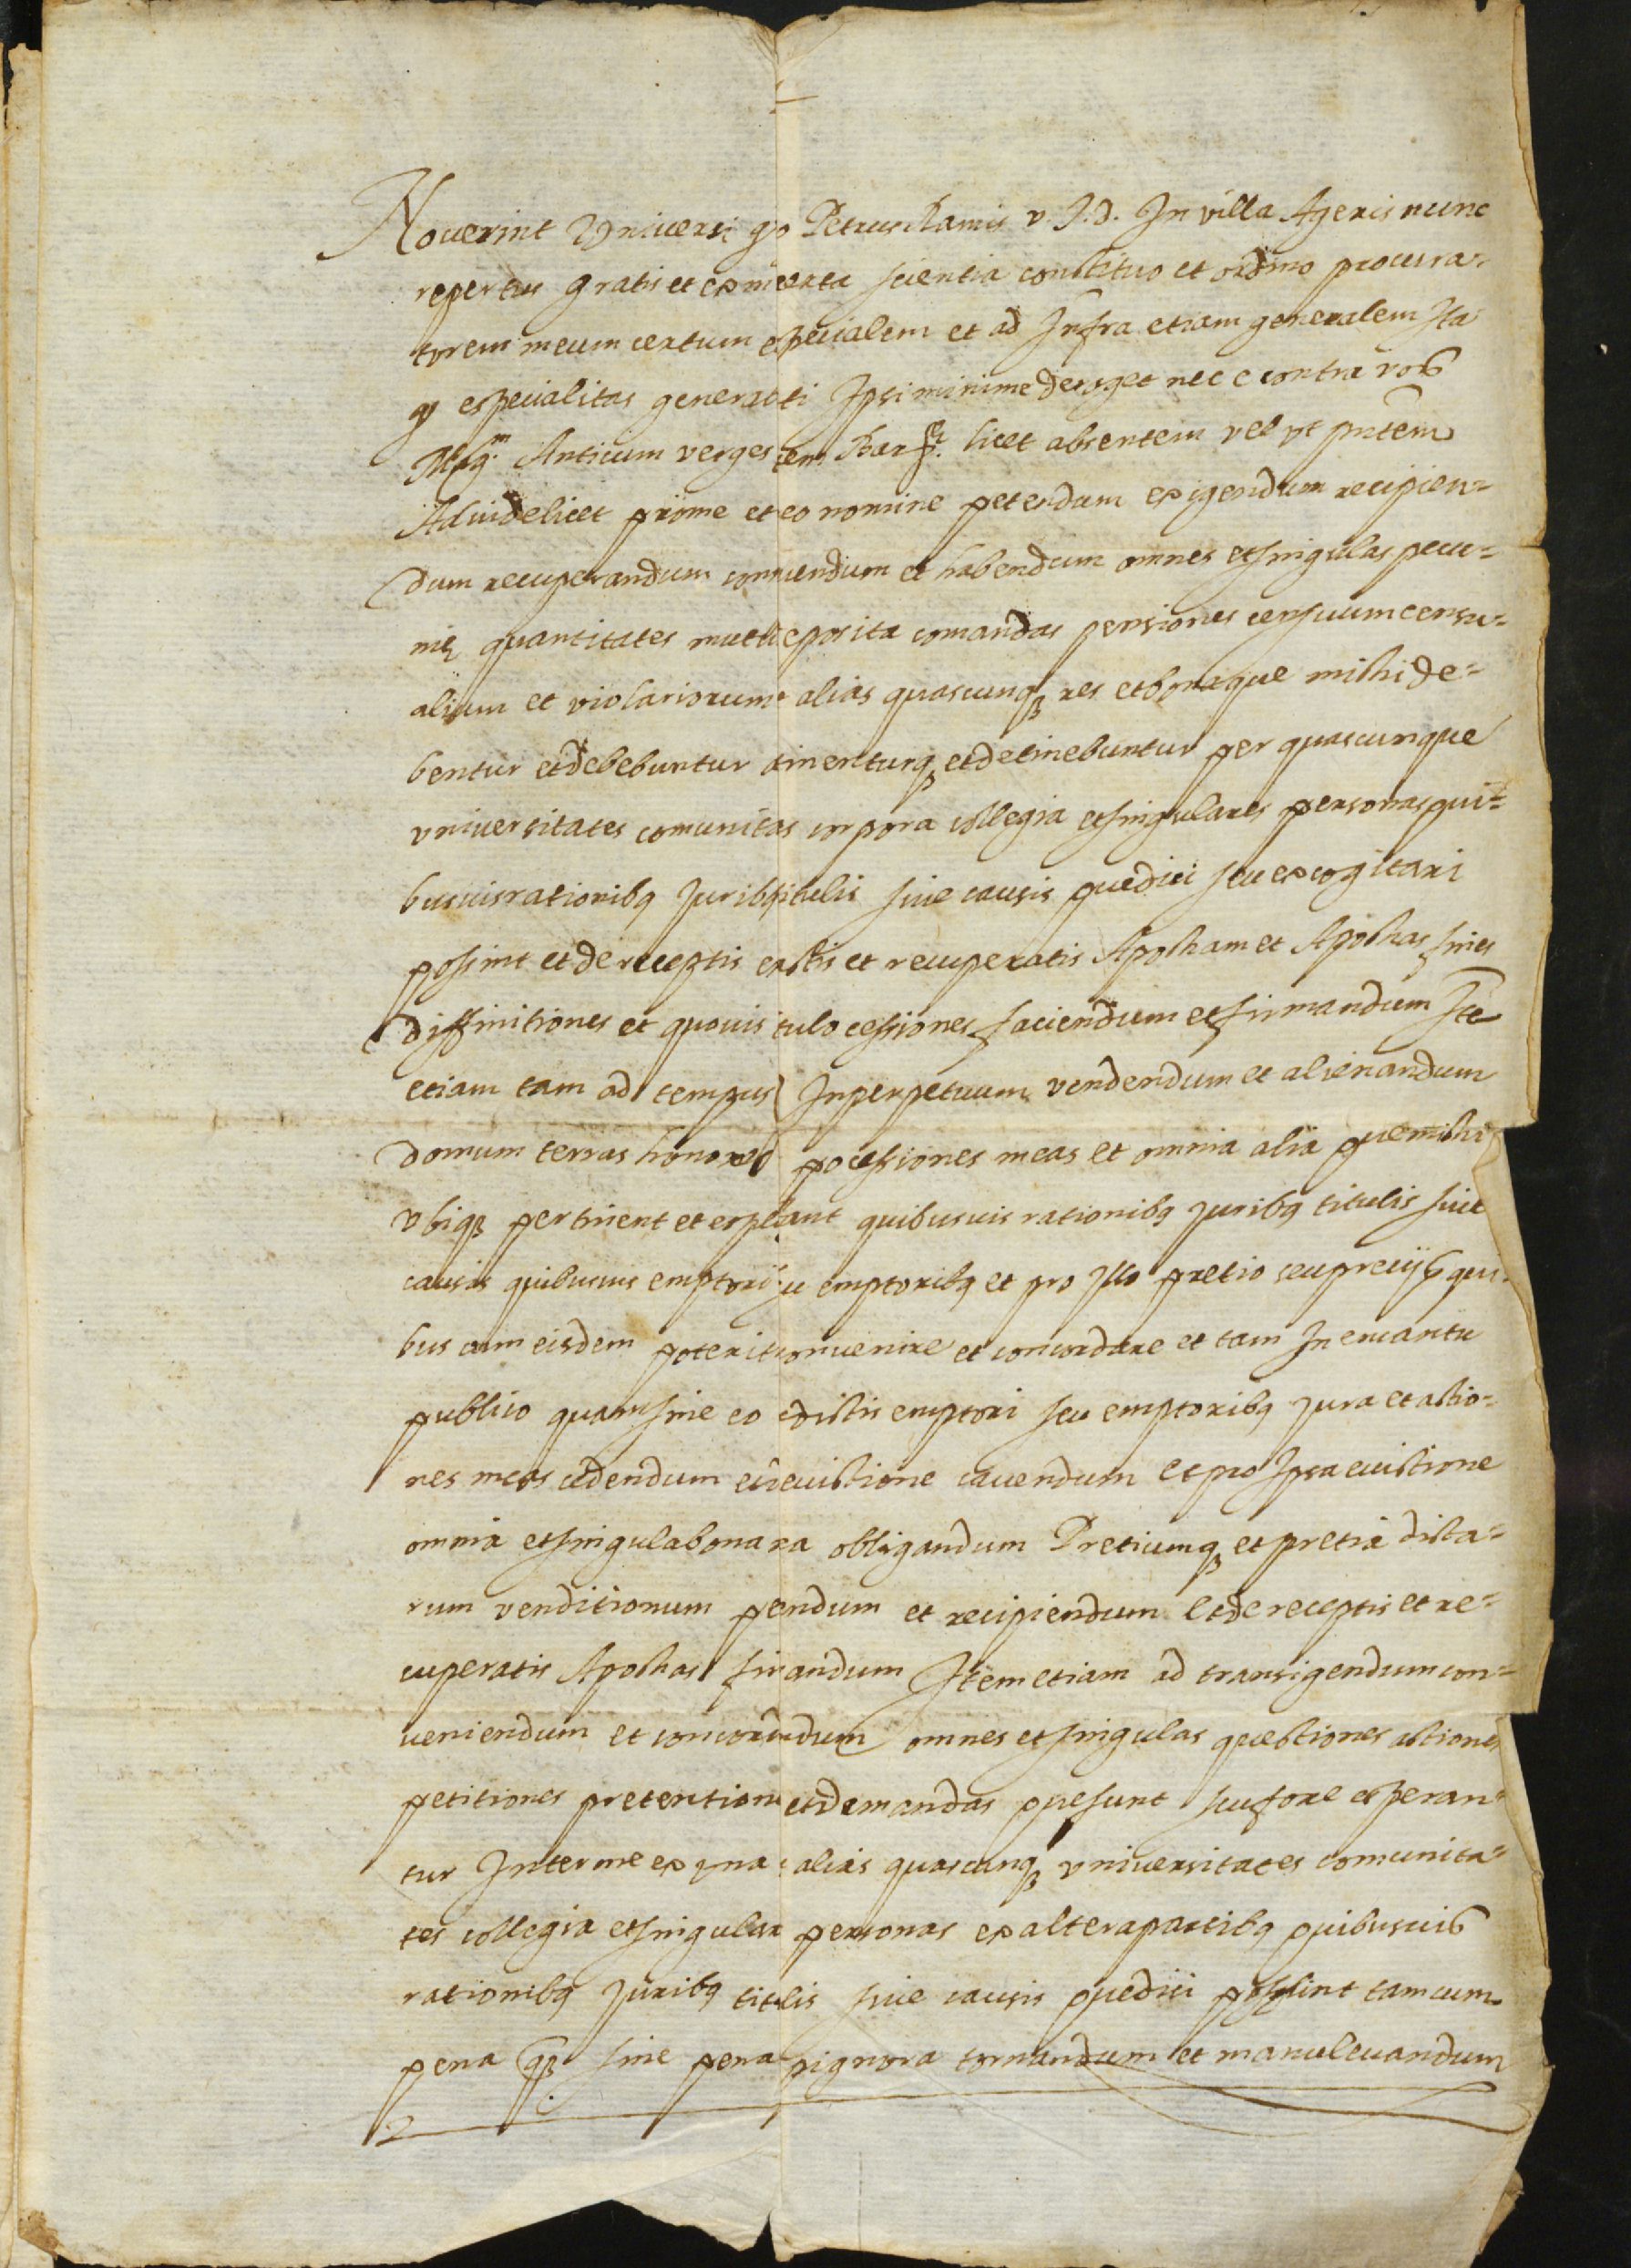 Noverint Vniversi q̃o Petrus Ramis v. J. d. In villa Ageris nunc
repertus gratis et ex mẽ certa scientia constituo et ordino procura-
torem meum certum especialem et ad Infra etiam generalem Ita
q especialitas generalti Ipsi minime deroget nec e contra vos
Mag.m Anticum verges em Bar licet absentem vel vt pntem
Ad videlicet pro me et eo nomine petendum exigendum recipien-
dum recuperandum conuendum et habendum omnes et singulas pecu-
nię quantitates mutu eposita comandas pensiones censuum censu-
alium et violariorum alias quascunq res et bona que mihi de-
bentur et debebuntur tinenturq et detinebuntur per quascunque
vniversitates comunitas corpora collegia et singulares personas qui-
busuis rationibq Juribq titulis siue causis que dici seu excogitari
possint et de receptis exactis et recuperatis Apocham et Apochas fines
diffinitiones et quouis tulo cessiones faciendum et firmandum Ite
etiam tam ad tempus Inperpetuum vendendum et alienandum
domum terras honores pocessiones meas et omnia alia que mihi
vbiq pertinent et expectant quibusuis rationibq Juribq titulis siue
causis quibusuis emptori u emptoribq et pro Illo pretio seu precijs qui-
bus cum eisdem poterit onuenire et concordare et tam In encantu
publico quam sine eo dictis emptori seu emptoribq Jura et actio-
nes meas cedendum et euictione cauendum et pro Ipsa euictione
omnia et singula bona ra obligandum Pretiumq et pretia dicta-
rum venditionum pendum et recipiendum et de receptis et re-
cuperatis Apochas firandum Item etiam ad transigendum con-
ueniendum et concordandum omnes et singulas questiones actiones
petitiones pretention et demandas que sunt seu fore esperan-
tur Inter me ex vna alias quascunq vniuersitates comunita-
tes collegia et singular personas ex altera partibq quibusuis
rationibq Juribq titulis siue causis que dici possint tam cum
pena q sine pena pignora tornandum et manuleuandum